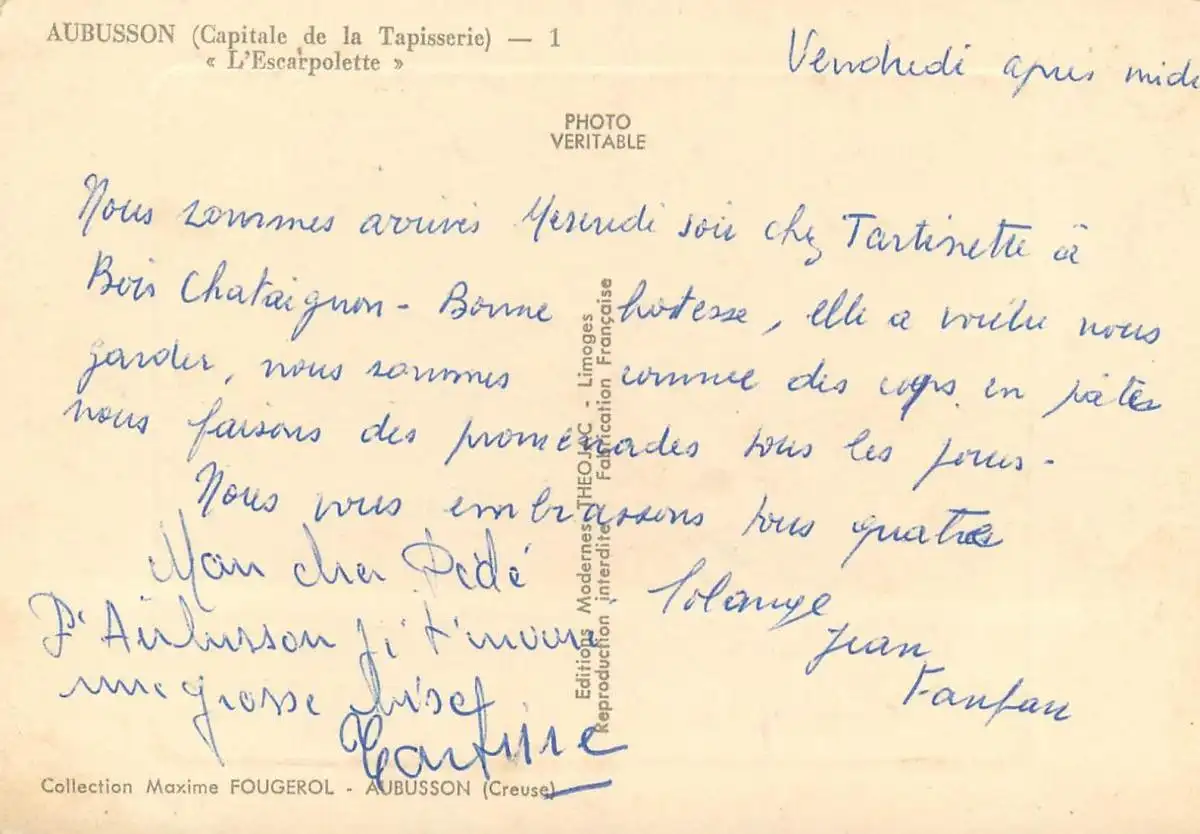 AUBUSSON (Capitale de la Tapisserie) — 1
« L'Escarpolette »
Vendredi après midi
PHOTO
VERITABLE
Nous sommes arrivés Mercredi soir chez Tartinette à
Bois Chataignon - Bonne hostesse, elle a voulu nous
garder, nous sommes comme des coqs en pâtes
nous faisons des promenades tous les jours -
Nous vous embrassons tous quatre
Solange
Jean
Fanfan
Mon cher Dédé
D'Aubusson je t'envoie
une grosse bise
Tartine
Editions Modernes THEOJAC - Limoges
Reproduction interdite Fabrication Française
Collection Maxime FOUGEROL - AUBUSSON (Creuse)